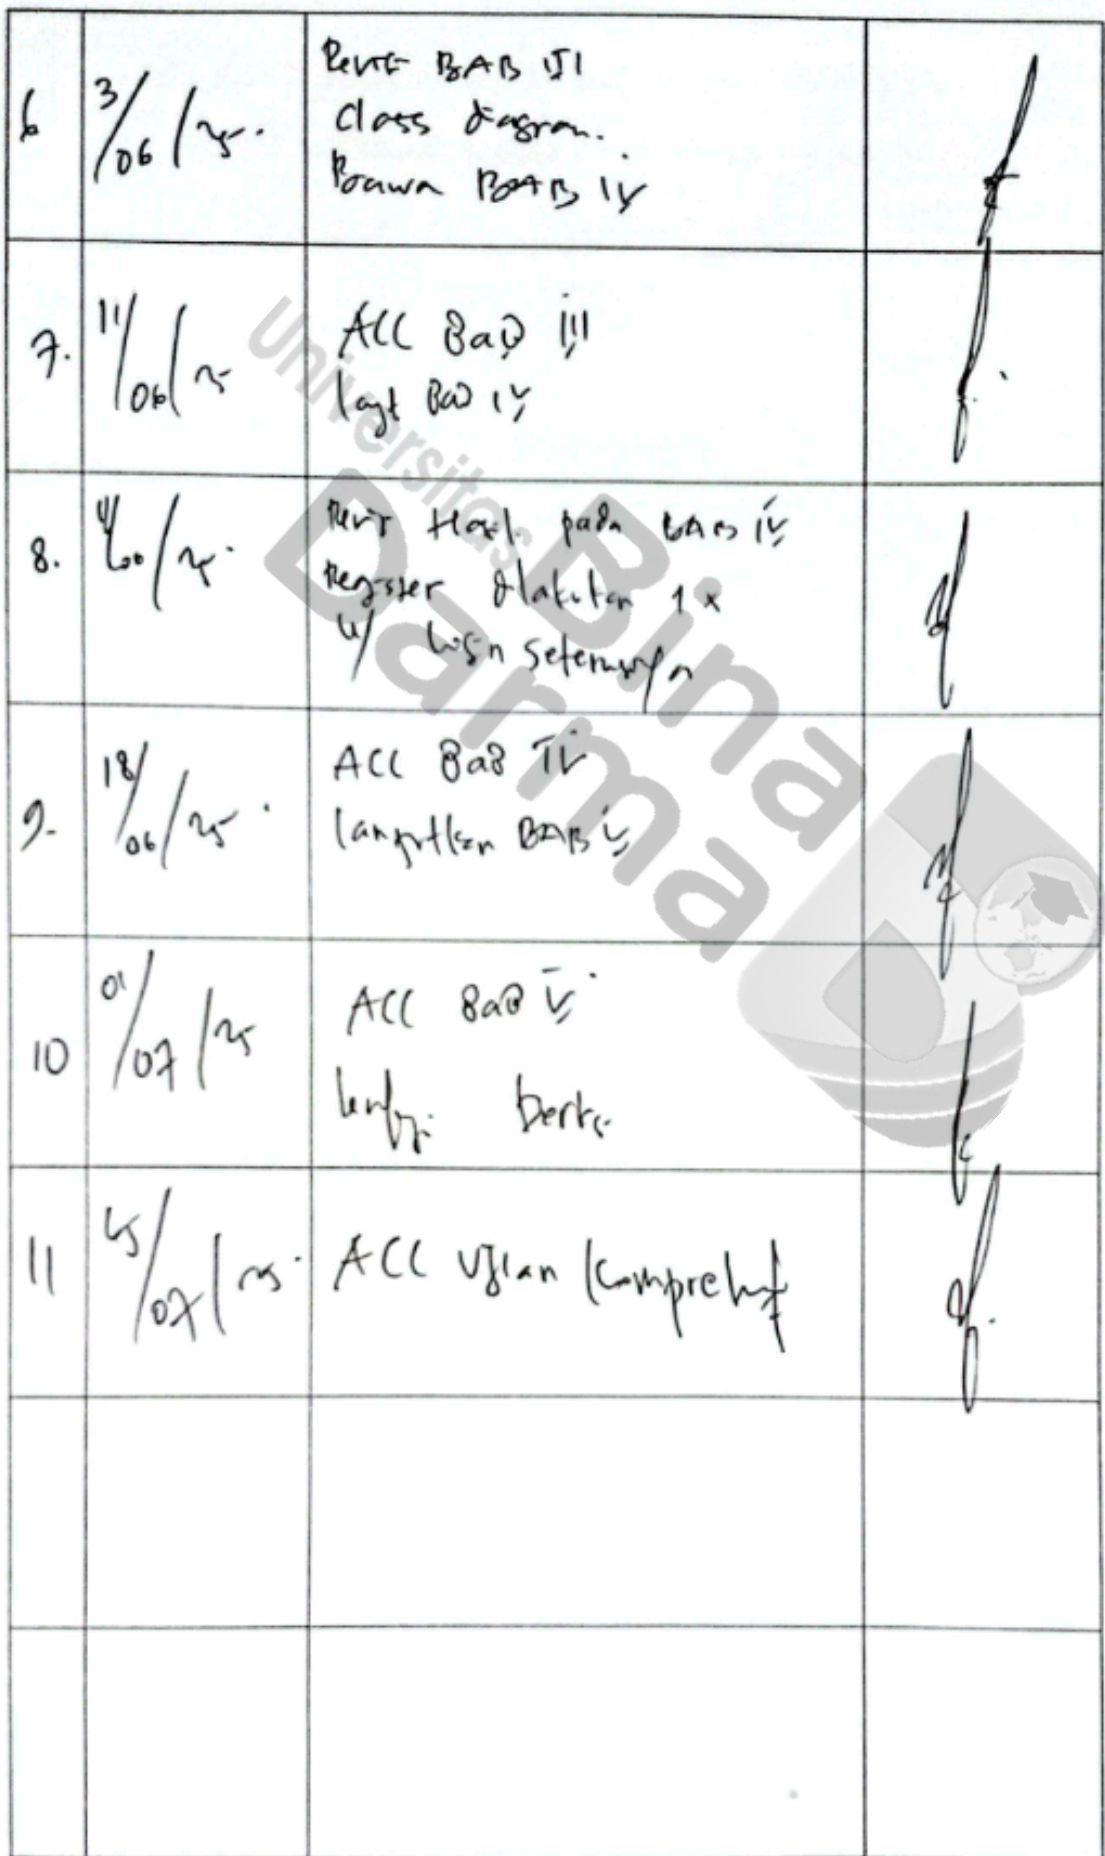 6 3/06/25. Revisi BAB III
Class diagram.
Bawa BAB IV
7. 11/06/25 ACC Bab III
lanjt Bab IV
8. /25. Revisi Hasil pada BAB IV
Register dilakukan 1 x
u/ login seterusnya
9. 18/06/25. ACC BaB IV
lanjutkan BAB V
10 01/07/25 ACC BaB V
11 /07/25. ACC Ujian Komprehensif
Universitas
Bina
Darma